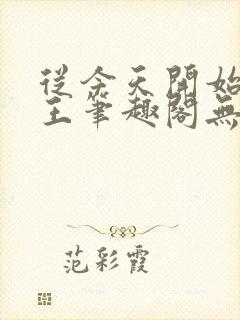 從今天開始
王筆趣閣無
范彩霞